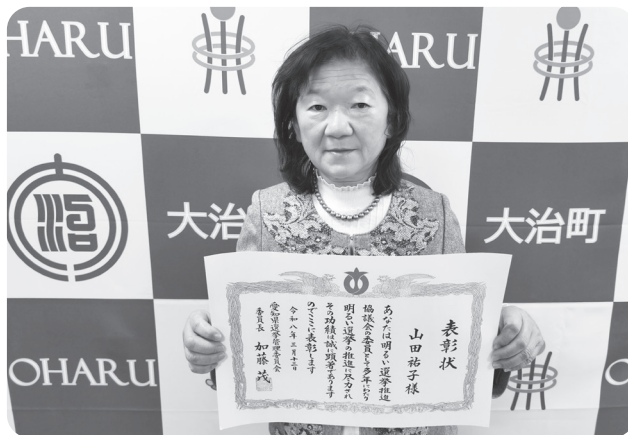 OHARU
OHARU
大治
大治町
OHARU
OHARU
表彰状
山田祐子様
あなたは明るい選挙推進
協議会の委員として多年にわたり
明るい選挙の推進に尽力され
その功績は誠に顕著であります
のでここに表彰します
令和八年三月十二日
愛知県選挙管理委員会
委員長 加藤茂